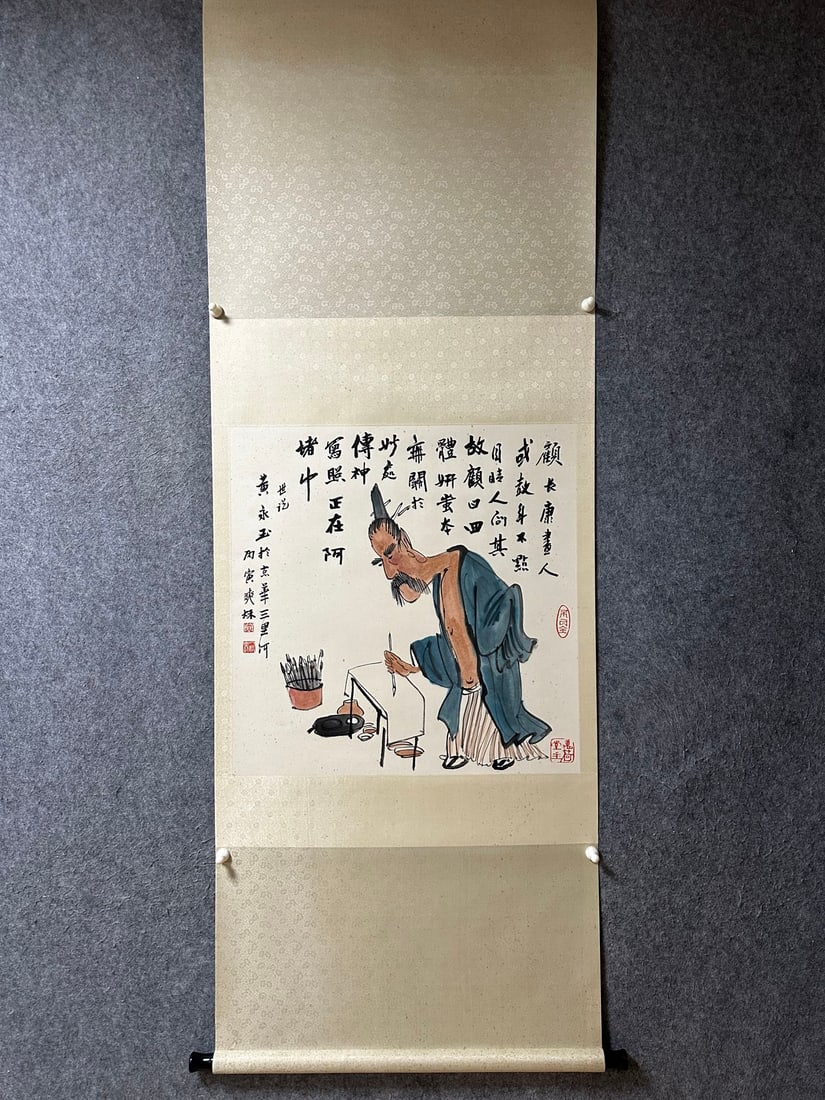 顧长康畫人
或数年不點
目睛人问其
故顧曰四
體妍蚩本
無關於
妙處
傳神
寫照正在阿
堵中
世说
黄永玉於京華三里河
丙寅爽秌
萬荷堂主